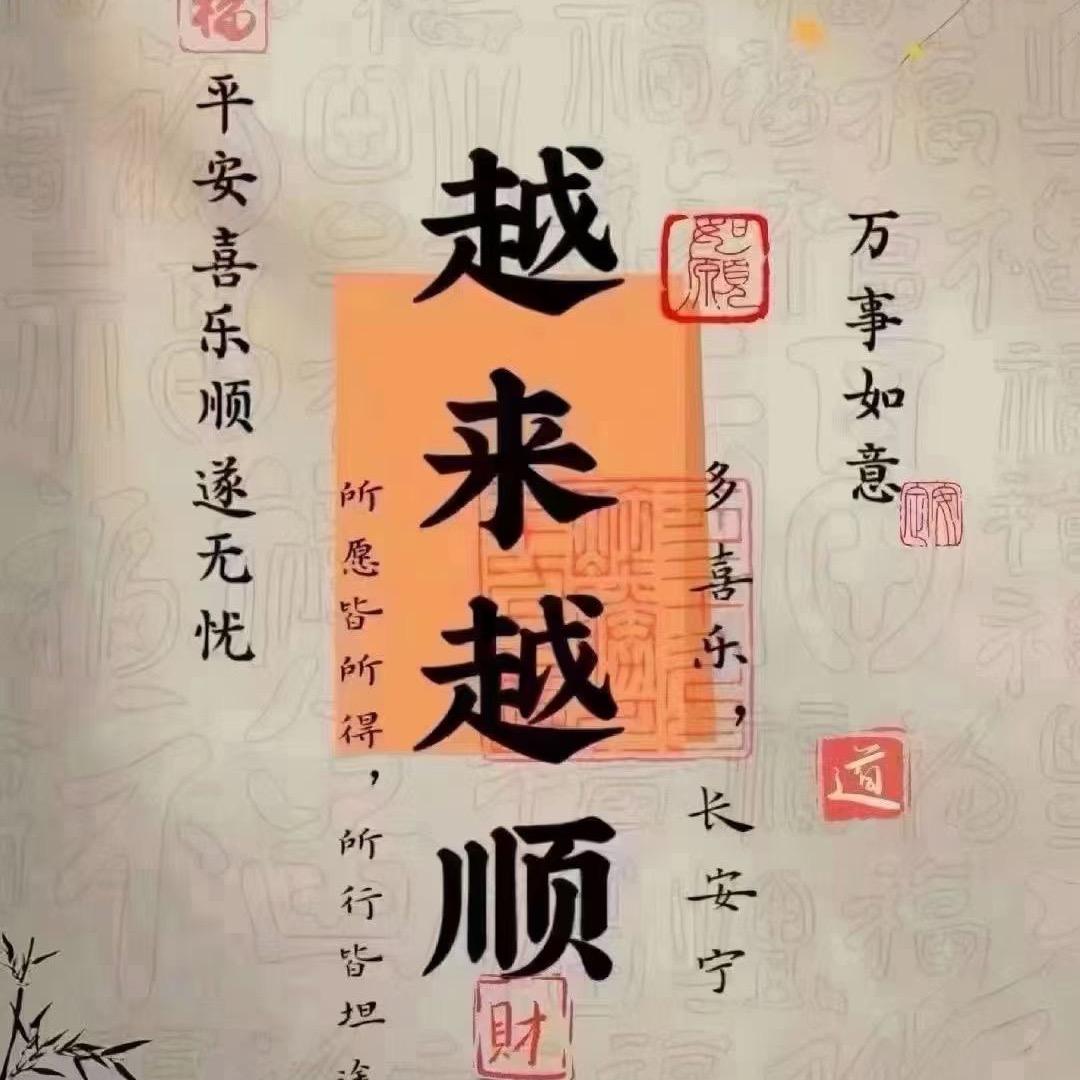 万事如意
安定
道
多喜乐，长安宁
如愿
越来越顺
财
所愿皆所得，所行皆坦途
福
平安喜乐顺遂无忧